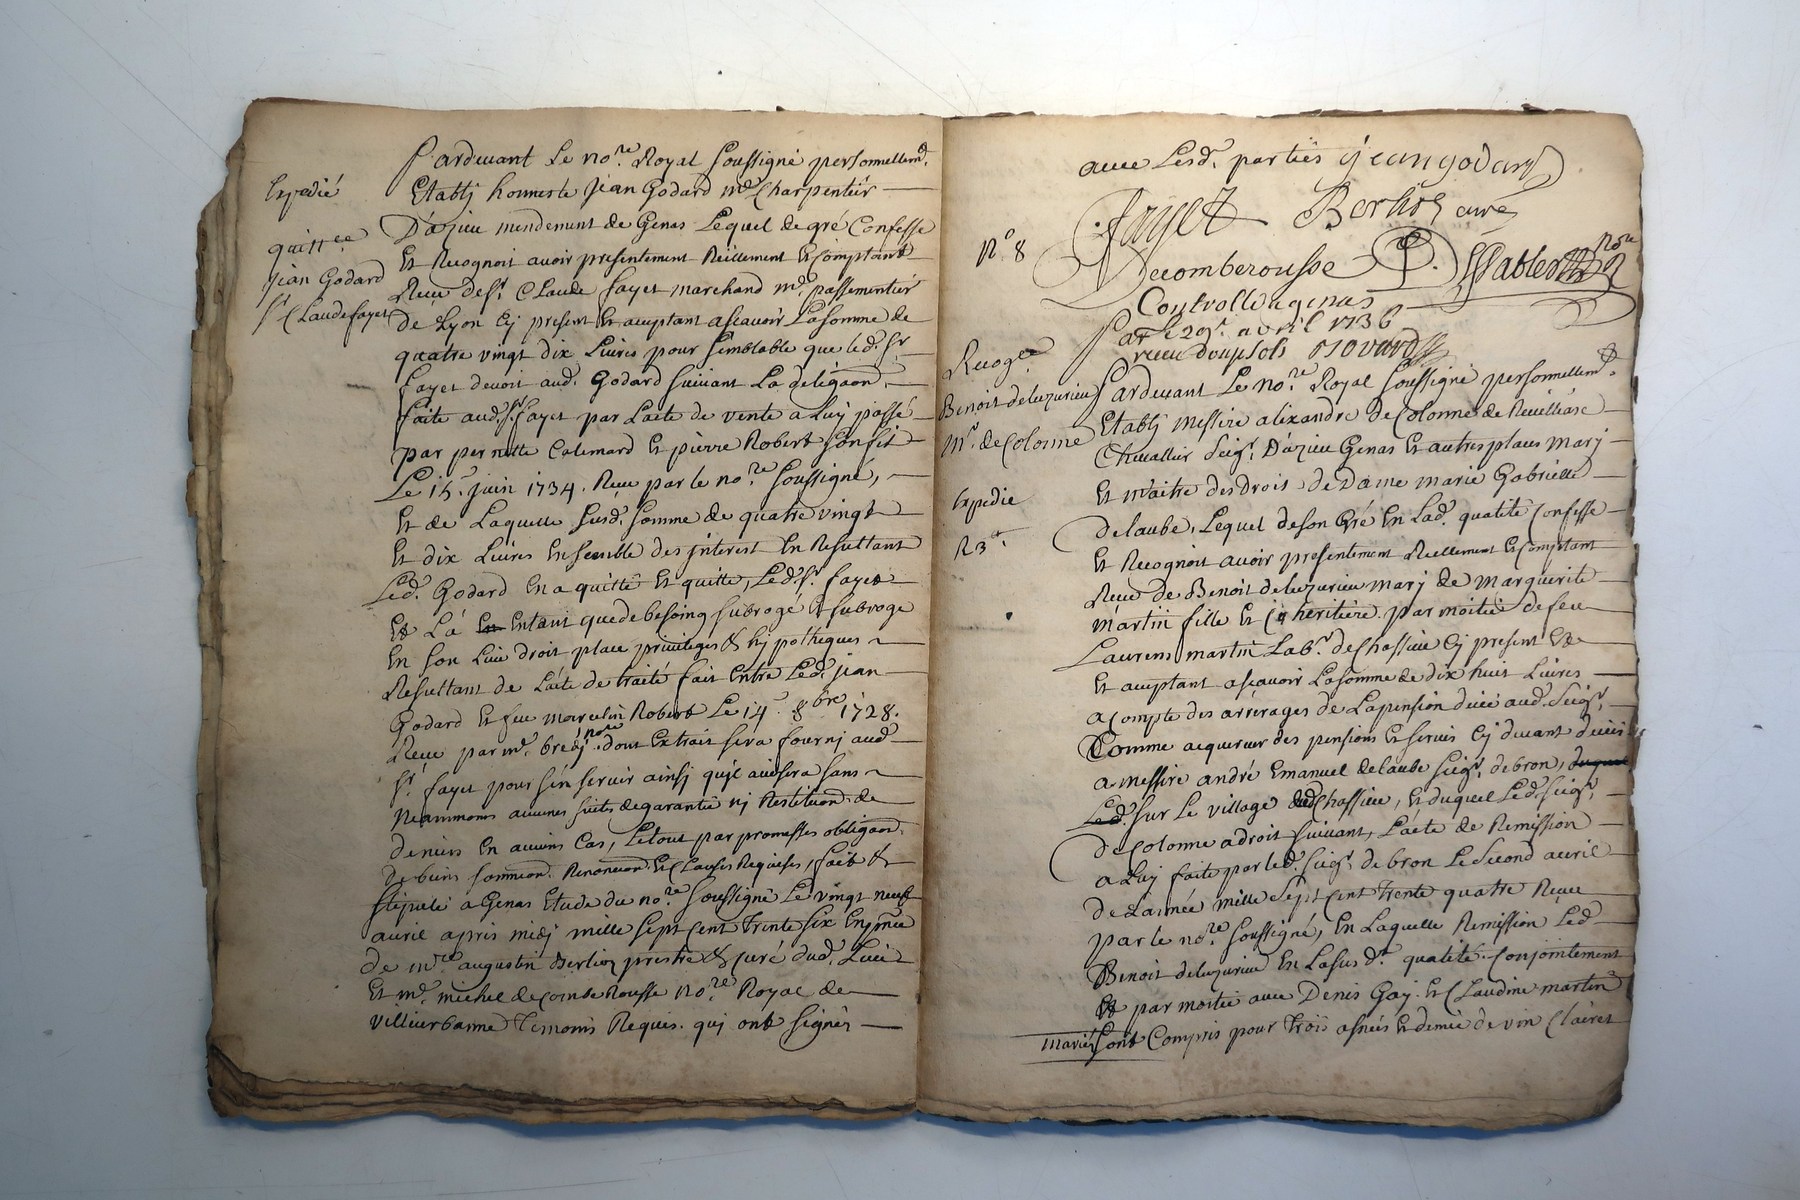 Expedié
quitt.ce
Jean Godard
Sr. Claude fayet
Pardevant Le no.re Royal soussigné personnellemd.
Etably honneste Jean Godard md. Charpentier
D'azieu mendement de Genas Lequel de gré Confesse
Et Recognoit avoir presentement Reellement Et Comptant
Receu de sr. Claude fayet marchand md. passementier
de Lyon Cy present Et acceptant ascavoir La somme de
quatre vingt dix Livres pour semblable que led. sr.
fayet devoit aud. Godard suivant La delegaon.
faite aud. sr. fayet par Lacte de vente a Luy passé
par pernette Calemard Et pierre Robert son fils
Le 15.e juin 1734. Receu par le no.re soussigné,
Et de Laquelle susd. somme de quatre vingt
Et dix Livres Ensemble des jnterest En Resultant
Led. Godard En a quitté Et quitte, Led. sr. fayet
Et La Entant que de besoing subrogé Et subroge
En son Lieu droit place privileges & hypotheques
Resultant de Lacte de traité fait Entre Led. jean
Godard Et feu marcelin Robert Le 14.e 8bre 1728.
Receu par me. bredy nore. dont Extrait sera fourny aud.
sr. fayet pour s'en servir ainsy qu'il avisera sans
Neammoins aucunes suite de garantie ny Restituon. de
deniers En aucuns Cas, Le tout par promesses obligaon.
de biens soumion. Renonciaon. Et Clauses Requises, fait &
stipulé a Genas Etude du no.re soussigné Le vingt neuf
avril apres midy mille sept cent trente six En pnce
de mre. augustin Berlioz prestre & curé dud. Lieu
Et me. michel decombe Rousse no.re Royal de
villieurbanne temoins Requis. qui ont signés
avec Lesd. parties jean godard
N.o 8
fayet Berlioz curé
Decomberousse Sablon nore
Controlle a genas
Par Le 29e. avril 1736
receu douze sols Novard
Recog.ce
Benoit delezurieu
Mr. de Colonne
Expedie
R 3.e
Pardevant Le no.re Royal soussigné personnellemd.
Etably Messire alixandre de Colonne de Reuilliase
Chevallier seigr. D'azieu Genas Et autres places mary
Et maitre des droits de Dame marie Gabrielle
delaube, Lequel de son Gré En Lad. qualité Confesse
Et Recognoit avoir presentement Reellement Et Comptant
Receu de Benoit delezurieu mary de marguerite
martin fille Et Coheritiere par moitié de feu
Laurens martin Labr. de Chassieu Cy present Et
Et acceptant ascavoir La somme de dix huit Livres
a Compte des arrerages de La pension deüe aud. seigr.
Comme acquereur des pensions Et servis Cy devant deües
a messire andré Emanuel delaube seigr. de bron, duquel
Led. sur Le village de Chassieu, Et duquel Led. seigr.
de Colonne a droit suivant, Lacte de Remission
a Luy faite par led. seigr. de bron Le second avril
de Lannée mille sept cent trente quatre Receu
par le no.re soussigné, En Laquelle Remission Led.
Benoit delezurieu En La susdt. qualité Conjointement
Et par moitié avec Denis Gay Et Claudine martin
mariés sont Compris pour trois asnées Et demie de vin Clairet